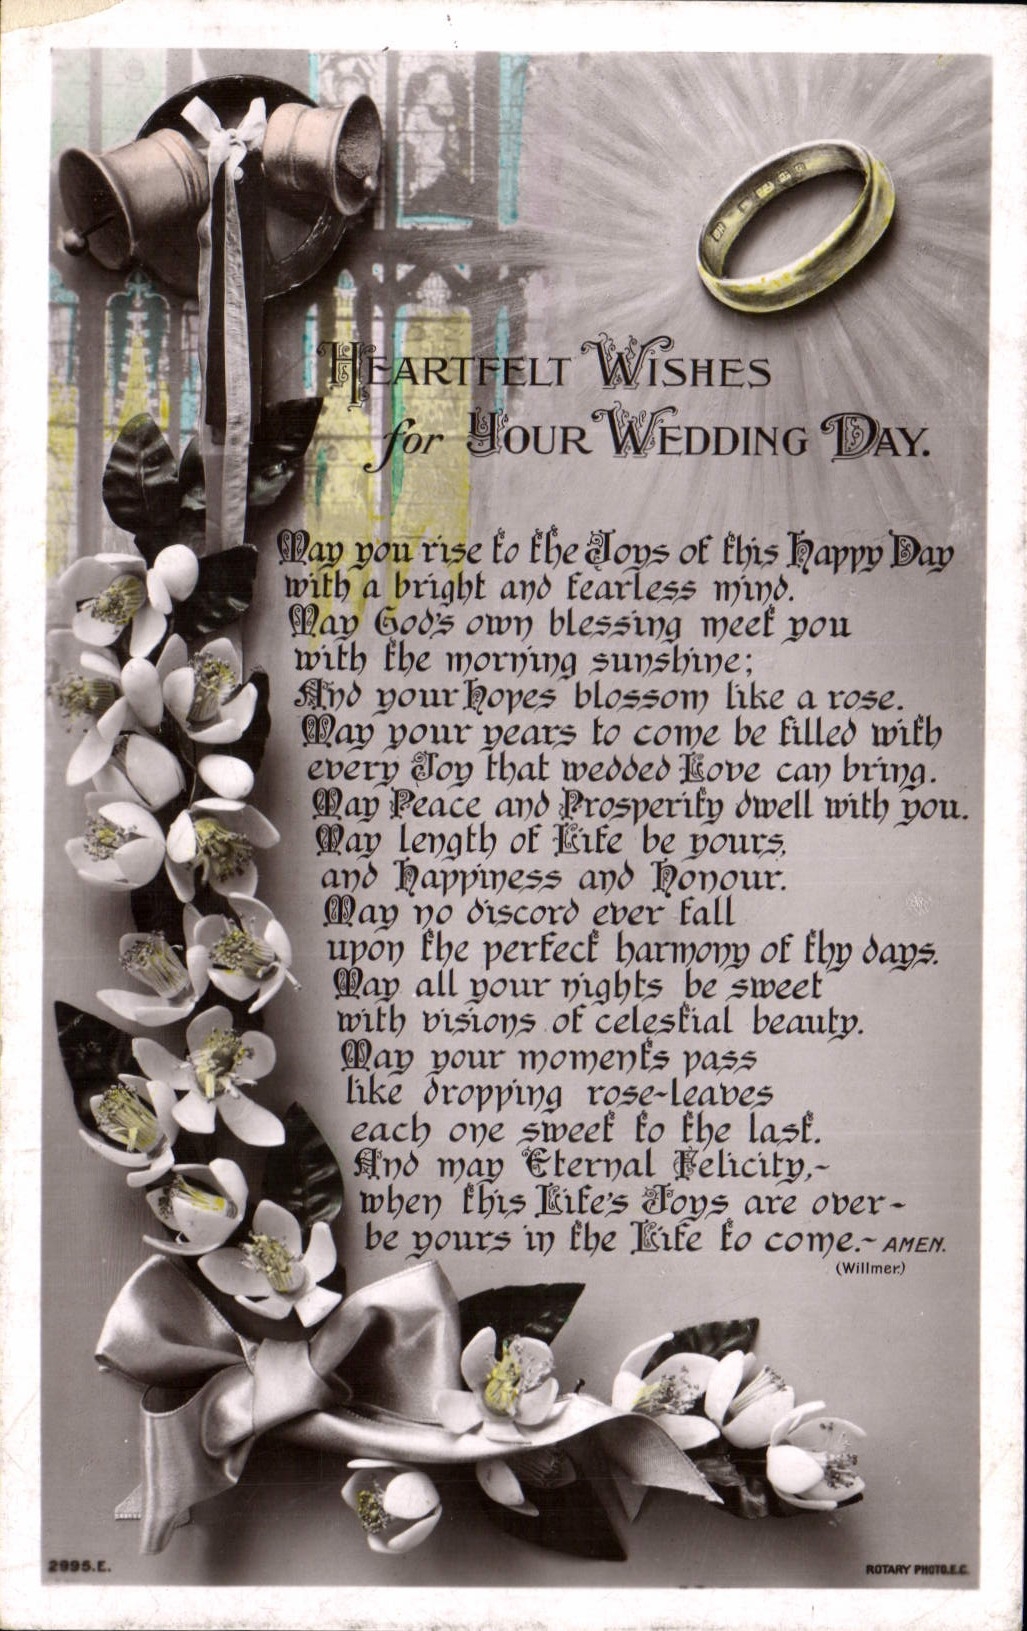 Heartfelt Wishes
for Your Wedding Day.
May you rise to the Joys of this Happy Day
with a bright and fearless mind.
May God's own blessing meet you
with the morning sunshine;
And your Hopes blossom like a rose.
May your years to come be filled with
every Joy that wedded Love can bring.
May Peace and Prosperity dwell with you.
May length of Life be yours,
and Happiness and Honour.
May no discord ever fall
upon the perfect harmony of thy days.
May all your nights be sweet
with visions of celestial beauty.
May your moments pass
like dropping rose-leaves
each one sweet to the last.
And may Eternal Felicity,-
when this Life's Joys are over-
be yours in the Life to come.- AMEN.
(Willmer.)
2995.E.
ROTARY PHOTO.E.C.